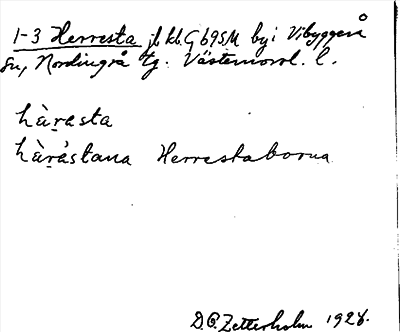 1-3 Herresta jb kb. G 695M by i Vibyggerå
sn, Nordingrå tg. Västernorrl. l.
hàṛasta
hàṛástana Herrestaborna
D.O. Zetterholm 1928.